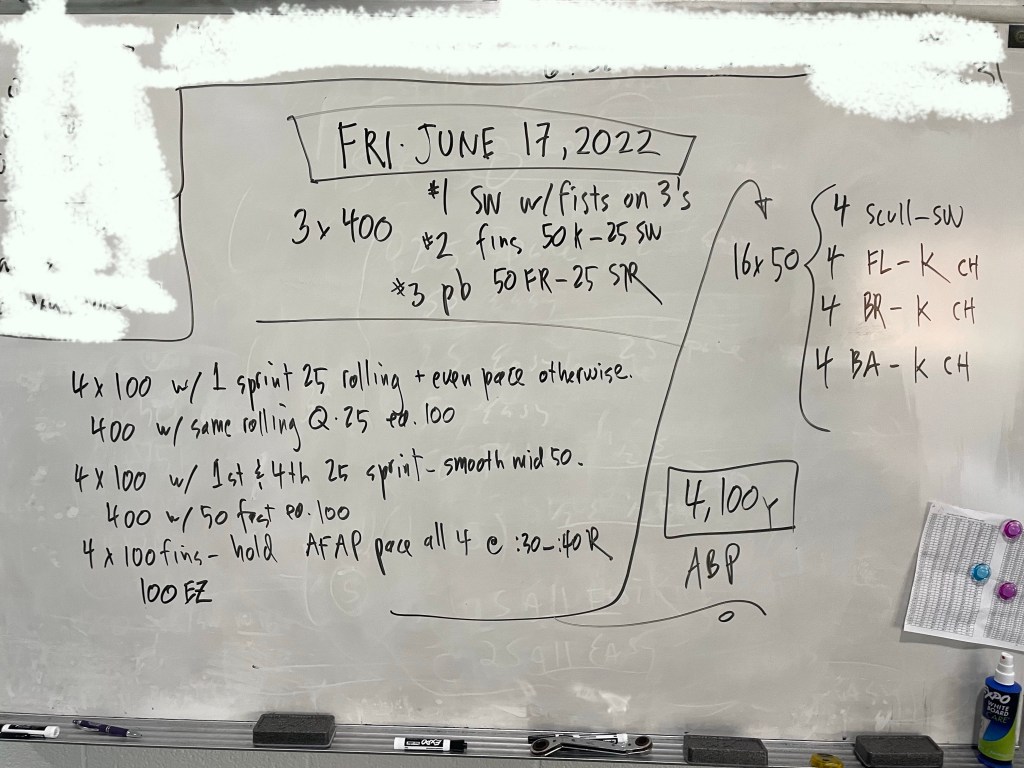 FRI. JUNE 17, 2022
3 x 400
#1 SW w/ fists on 3's
#2 fins 50 K - 25 SW
#3 pb 50 FR - 25 STR
4 x 100 w/ 1 sprint 25 rolling + even pace otherwise.
400 w/ same rolling Q. 25 ea. 100
4 x 100 w/ 1st & 4th 25 sprint - smooth mid 50.
400 w/ 50 fast ea. 100
4 x 100 fins - hold AFAP pace all 4 @ :30-:40 R
100 EZ
16 x 50
4 scull - SW
4 FL - K CH
4 BR - K CH
4 BA - K CH
4,100y
ABP
EXPO
WHITE
BOARD
CARE
EXPO